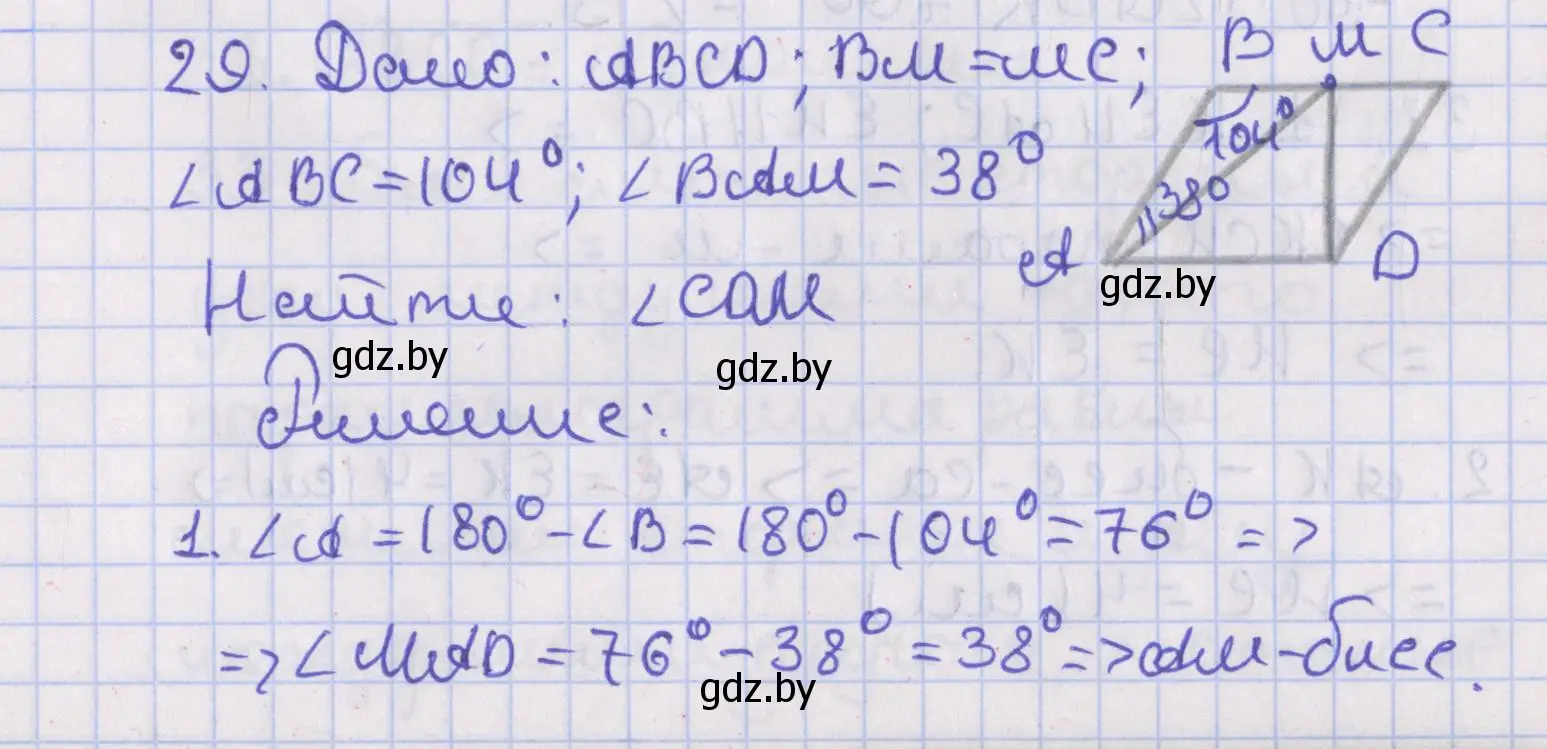 29. Дано: ABCD; BM=MC; B M C
∠ABC=104°; ∠BAM=38° 104° 38°
A D
gdz.by
Найти: ∠CDM
gdz.by gdz.by
Решение:
1. ∠A=180°-∠B=180°-104°=76° =>
=> ∠MAD=76°-38°=38° => AM-бисс.
gdz.by